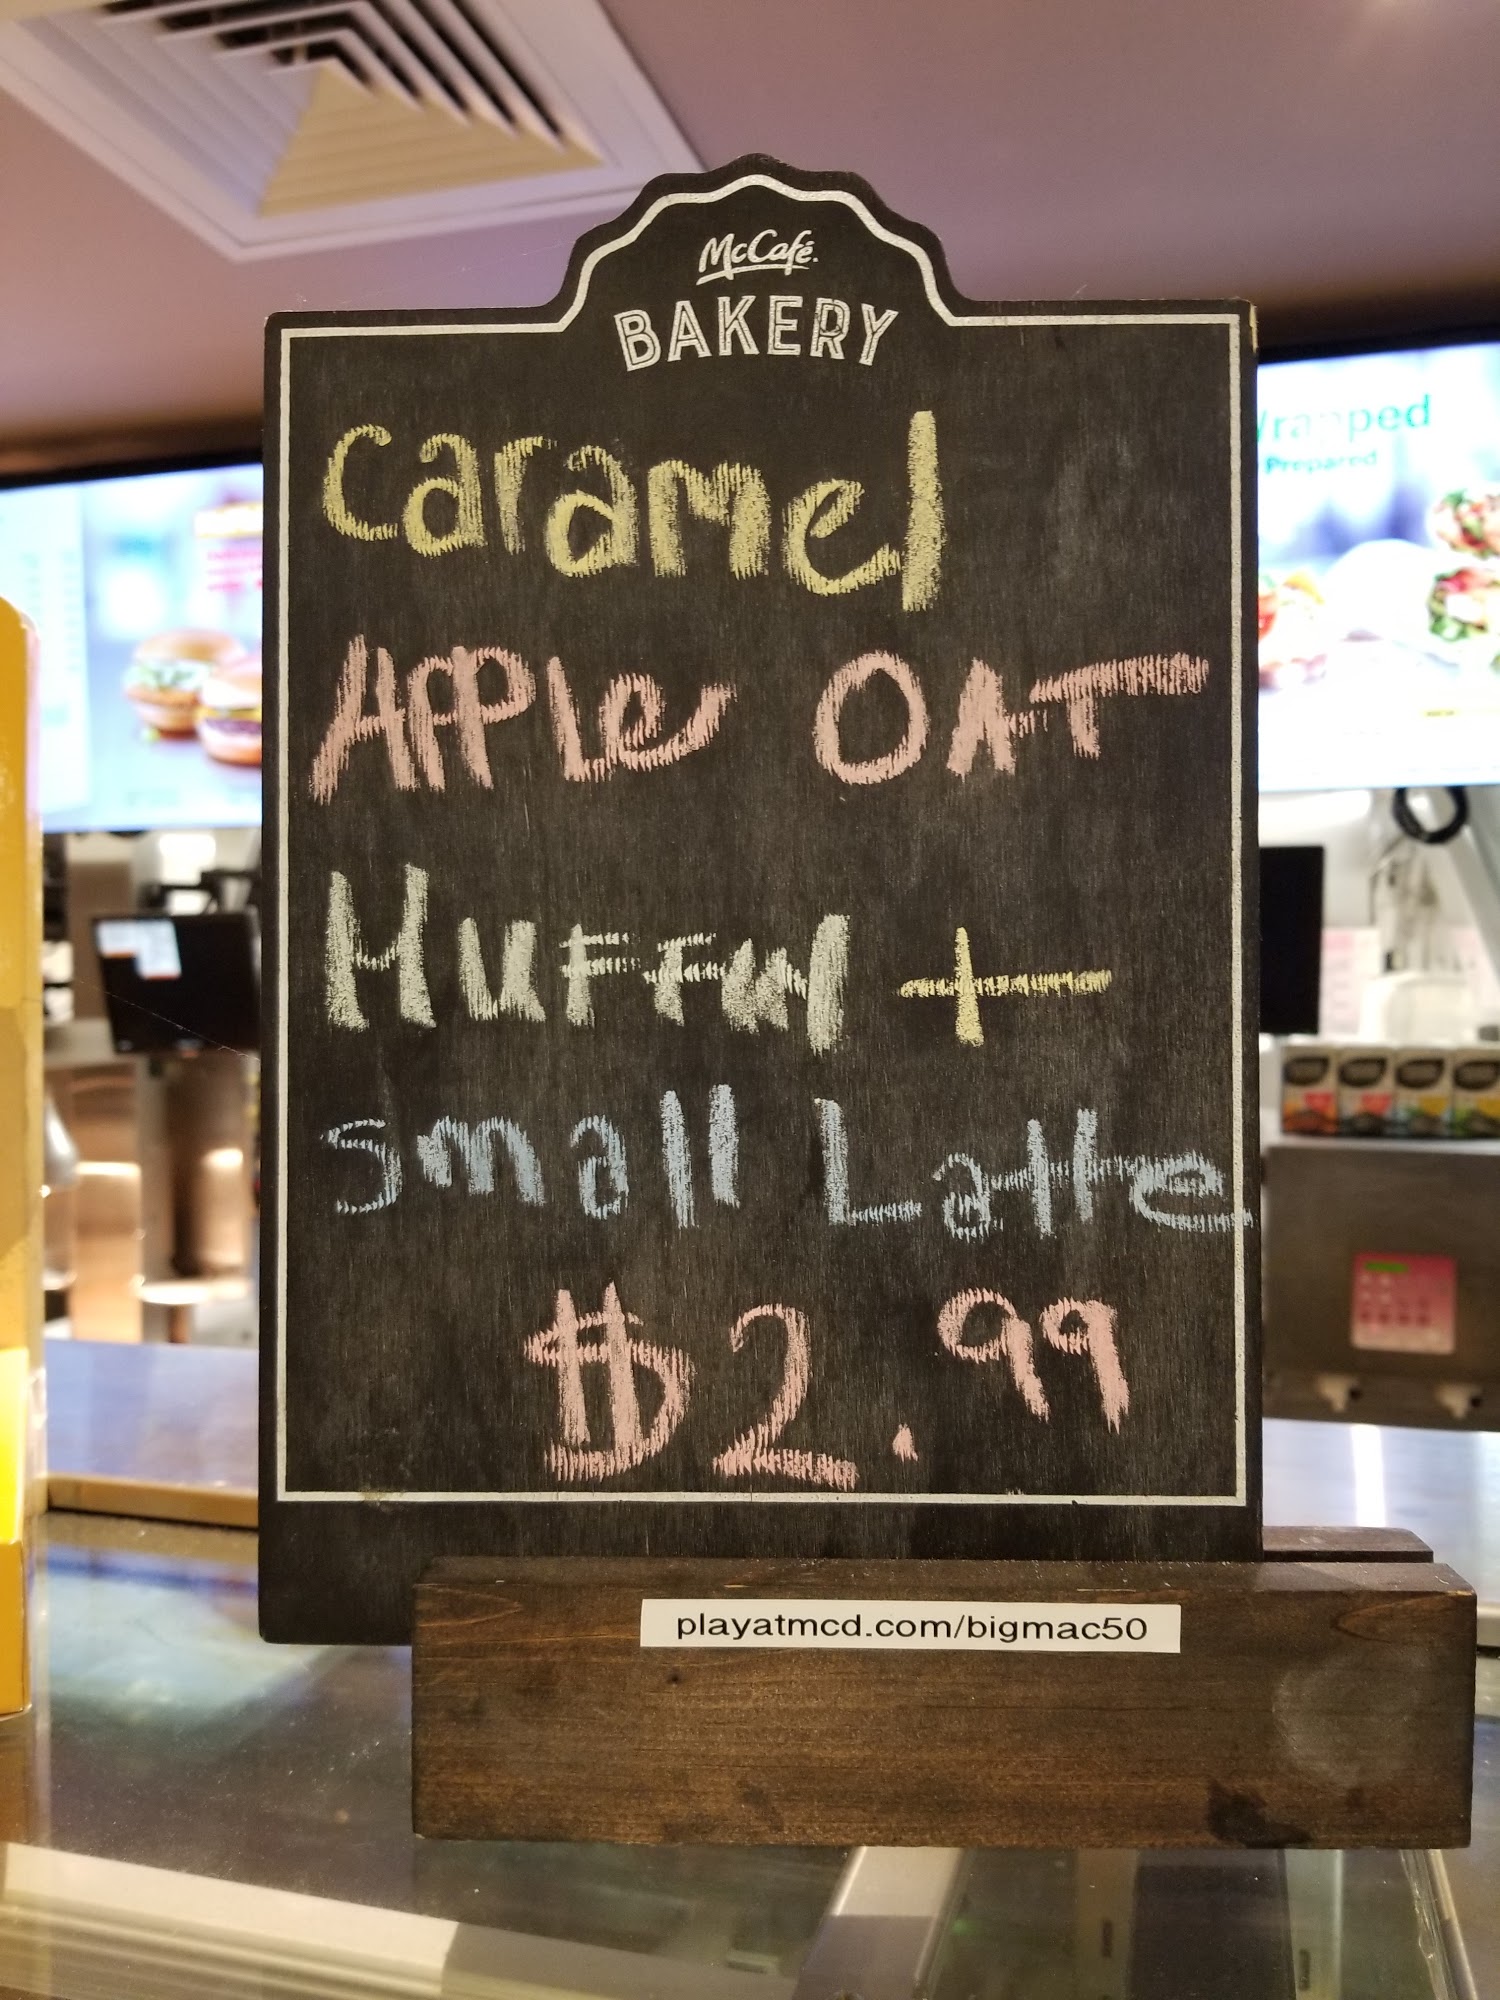 McCafé.
BAKERY
caramel
APPLe OAT
MUFFIN +
small Latte
$2.99
playatmcd.com/bigmac50
Wrapped
Prepared